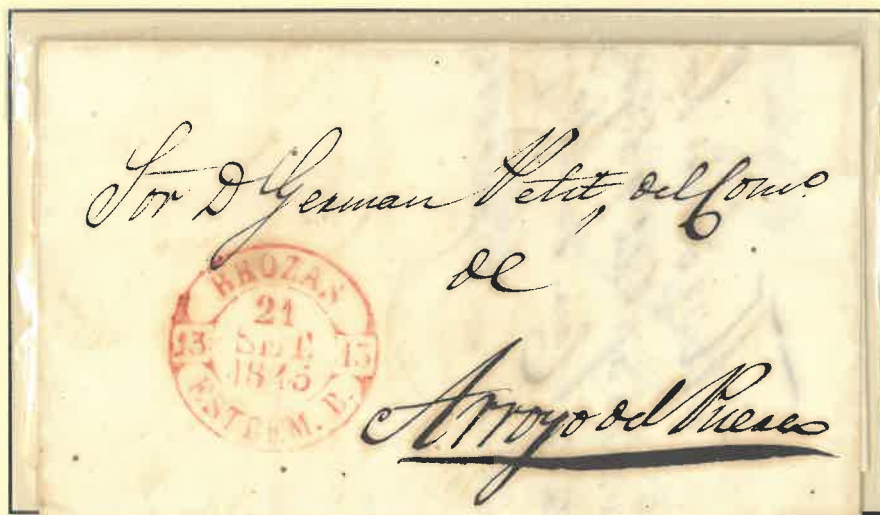 Sor D German Petit, del Como
de
Arroyo del Puerco
BROZAS
21
SET.
1845
13 13
ESTREM. B.